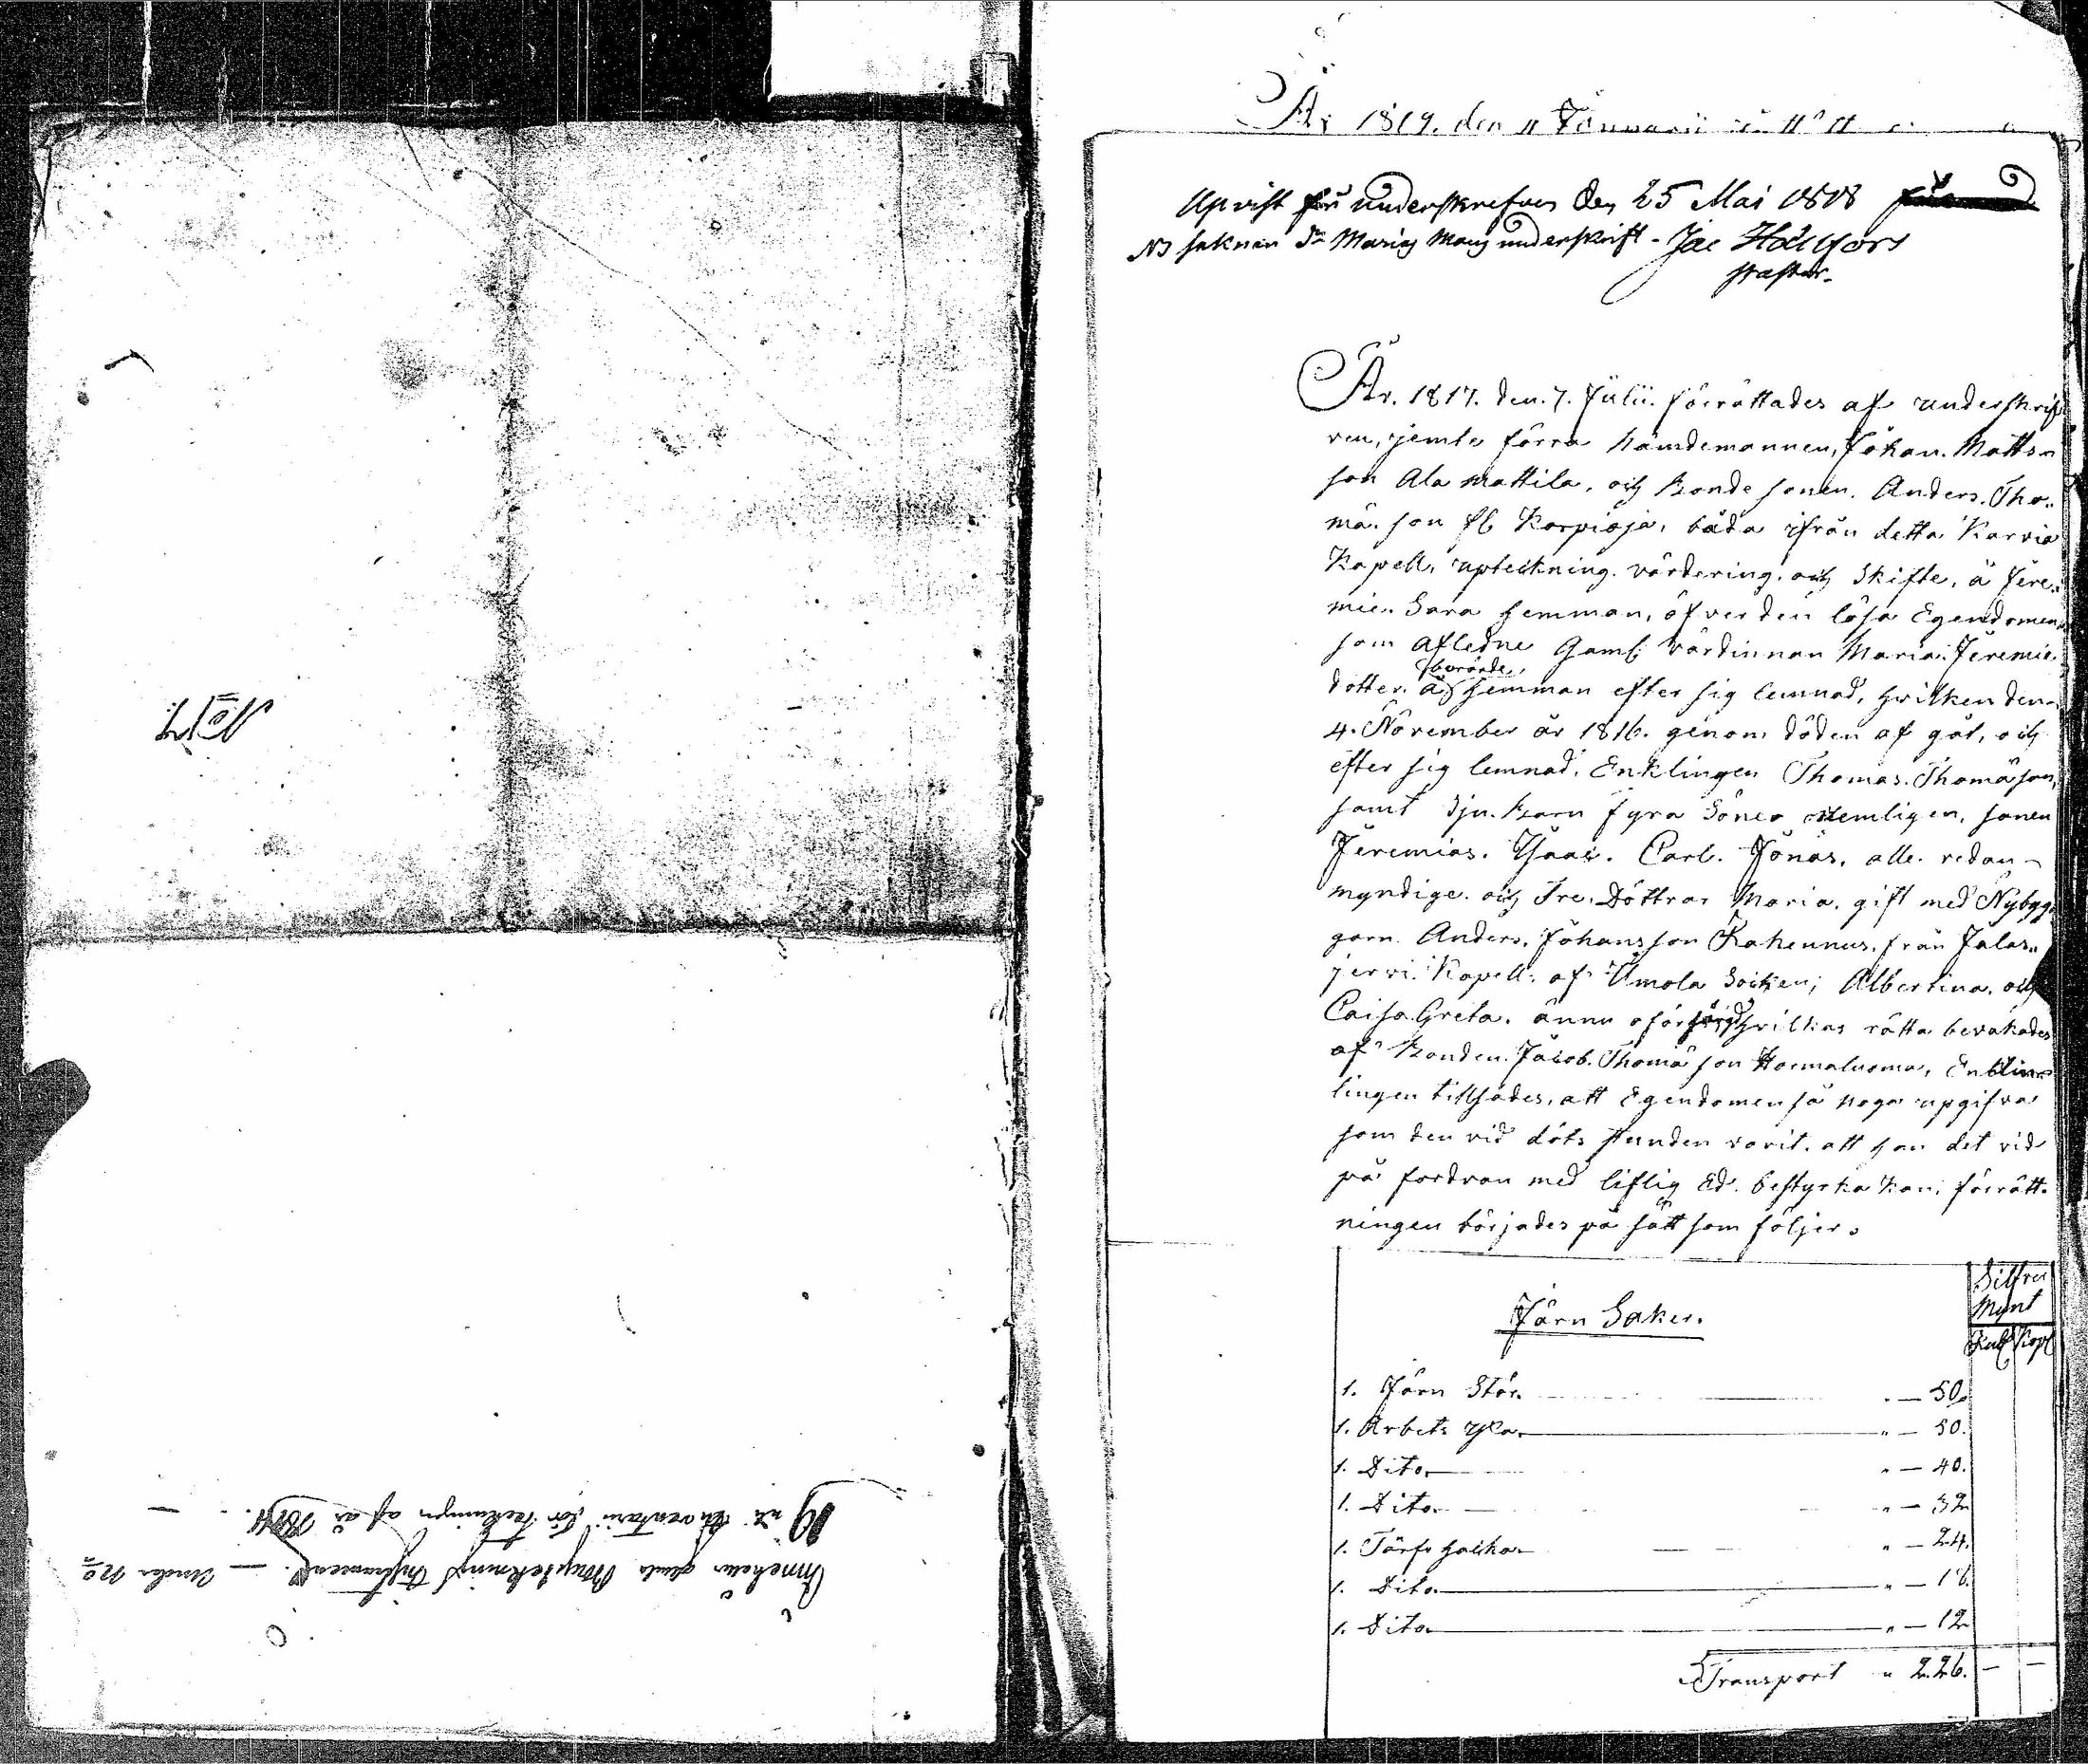 År 1819. den 11 Januarii
Upvist för underskrefven den 25 Mai 1818
NB saknar Marias Mans underskrift - Jac Hällfors
År. 1817. den. 7. Julii. förrättades af underskrif
ven, jemte förra Nämdemannen, Johan. Matts-
son Ala Mattila, och Bonde sonen. Anders. Tho..
mä. son fl Korpioja, båda ifrån detta Karvia
Kapell, upteckning. värdering. och Skifte, å Jere..
mie.. Sara hemman, öfver den lösa Egendomen
som afledne Gaml. värdinnan Maria. Jeremie
dotter. å berörde hemman efter sig lemnad, hvilken den
4. November år 1816. genom döden af gåt, och
efter sig lemnad. Enklingen Thomas. Thomäson,
samt Sju. Barn fyra Söner nemligen, sonen
Jeremias. Isaac. Carl. Jonas. alle. redan
myndige. och Tre. Döttrar Maria. gift med Nybyg
garn Anders. Johansson från Jalas..
jervi. Kapell. af Ilmola Socken, Albertina. och
Caisa Greta. ännu oförsörgd hvilkas rätta bevakades
af Bonden. Jacob. Thomä son Enklin-
lingen tillsades, att Egendomen så noga upgifva
som den vid döts stunden varit. att han det vid
på fordran med liflig Ed. bestyrka kan, förrätt-
ningen börjades på sätt som följer.
Silfver
Mynt
Järn Saker.
Rub Kop
1. Järn Stör. " — 50.
1. Arbets yxa. " — 50.
1. Dito " — 40.
1. Dito " — 32
1. Törfs hacka " — 24.
1. Dito " — 18.
1. Dito " — 12
Transport " 2.26. — —
No 17
Innehåller Uptekning Instrument — Under No
19 Inventarii för teckningen af år 1814.